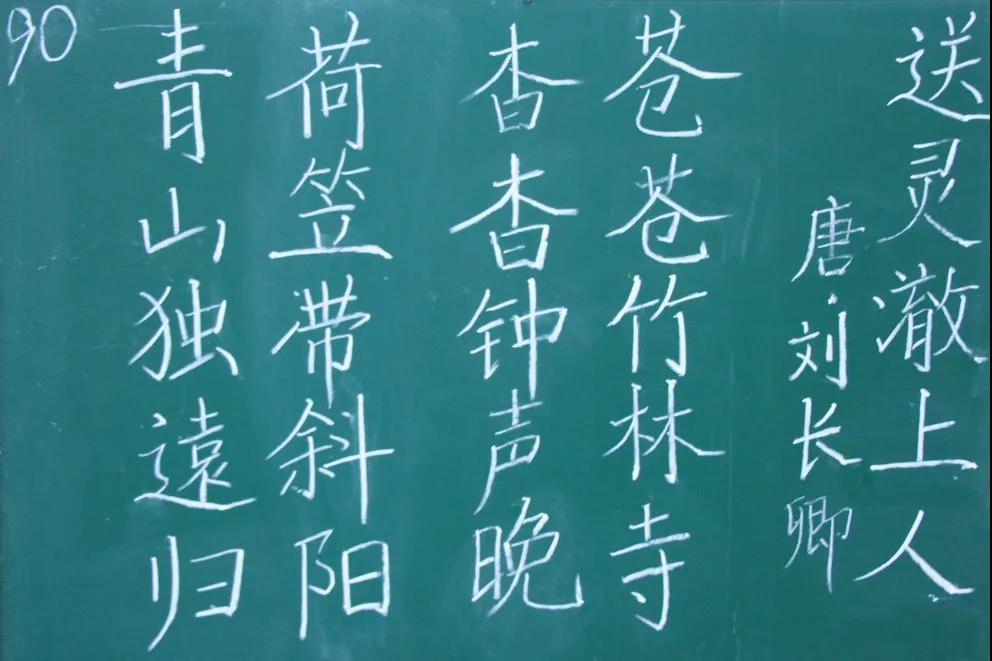 送灵澈上人
唐·刘长卿
苍苍竹林寺
杳杳钟声晚
荷笠带斜阳
青山独遠归
90